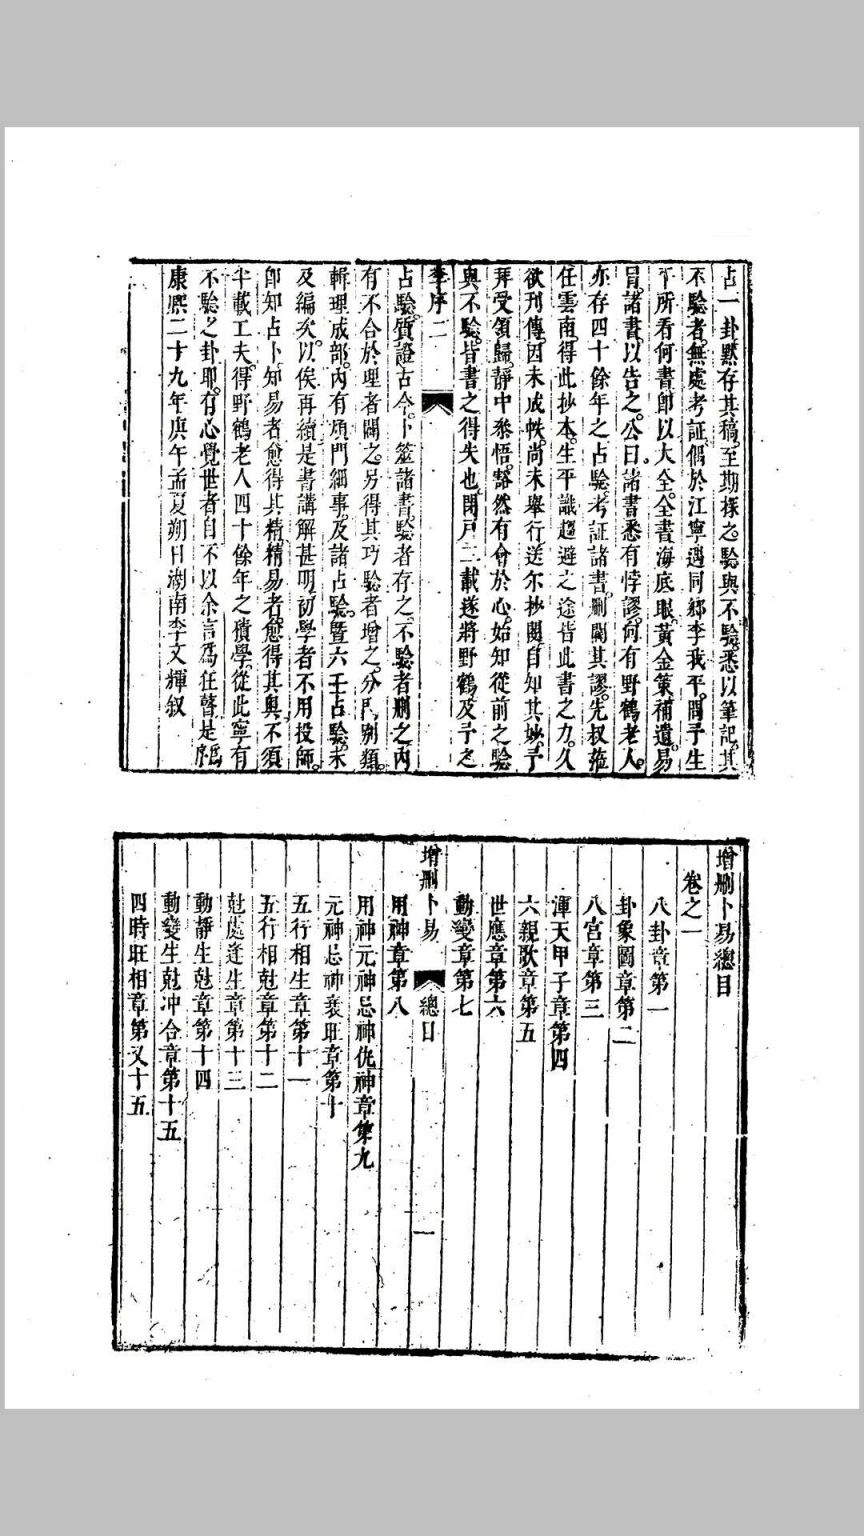 占一卦黙存其稿。至期摖之。驗與不驗。悉以筆記。其
不驗者。無處考証。偶於江寧遇同鄉李我平。問予生
平所看何書。卽以大全。全書海底眼。黃金策補遺。易
冐諸書。以告之。公曰。諸書悉有悖謬。何有野鶴老人。
亦存四十餘年之占驗。考証諸書。刪闢其謬。先叔蒞
任雲南。得此抄本。生平識趨避之途皆此書之力。久
欲刋傳。因未成帙。尚未舉行送尔抄閱。自知其妙。予
拜受領歸。靜中叅悟。豁然有會於心。始知從前之驗
與不驗。皆書之得失也。閉戸三載。遂將野鶴及予之
李序 二
占驗。質證古今。卜筮諸書。驗者存之。不驗者刪之。內
有不合於理者闢之。另得其巧驗者增之。分門別類。
輯理成部。內有頂門細事。及諸占驗。曁六壬占驗。未
及編次。以俟再續。是書講解甚明。初學者不用投師。
卽知占卜。知易者愈得其精。精易者。愈得其奧。不須
半載工夫。得野鶴老人四十餘年之積學。從此寧有
不驗之卦耶。有心覺世者。自不以余言爲狂瞽是序。
康熙二十九年庚午孟夏朔日湖南李文輝叙
增刪卜易總目
卷之一
八卦章第一
卦象圖章第二
八宮章第三
渾天甲子章第四
六親歌章第五
世應章第六
動變章第七
增刪卜易 總目 一
用神章第八
用神元神忌神仇神章第九
元神忌神衰旺章第十
五行相生章第十一
五行相尅章第十二
尅處逢生章第十三
動靜生尅章第十四
動變生尅冲合章第十五
四時旺相章第又十五